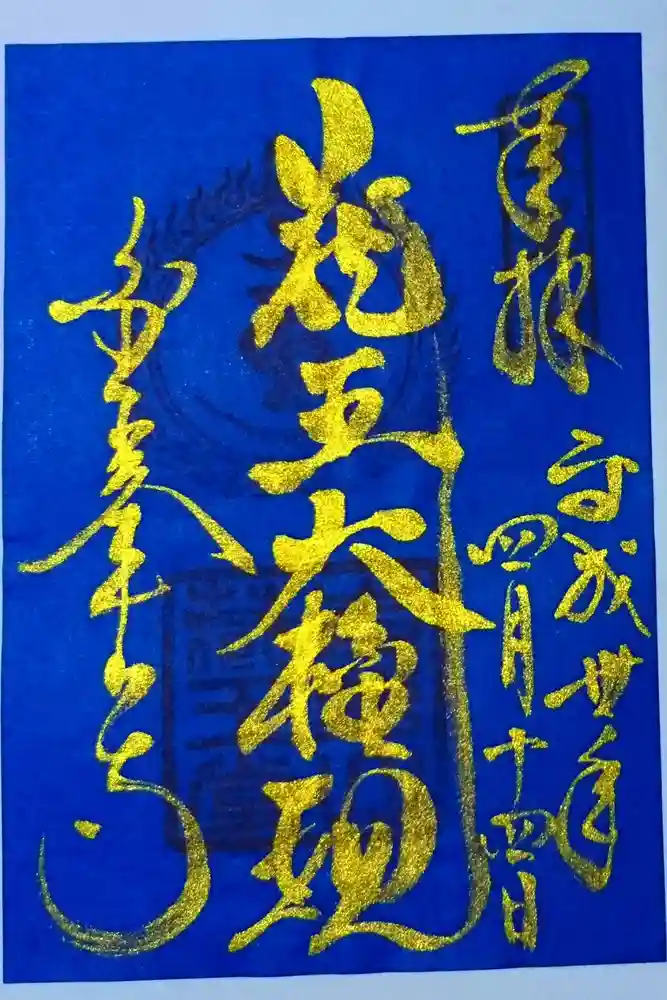 奉拝
平成丗年
四月十四日
蔵王大権現
金峯山寺